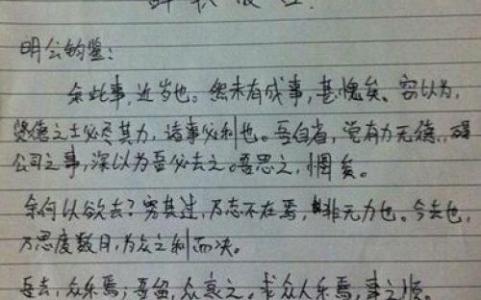 辞职报告:
明公钧鉴:
余此事,近岁也。然未有成事,甚愧矣。窃以为,
贤德之士必尽其力,诸事必利也。吾自省,觉有力无德,碍
公司之事,深以为吾必去之。吾思之,惆矣。
余何以欲去?穷其过,乃志不在焉,非无力也。今去也,
乃思度数月,为众之利而决。
吾去,众乐焉;吾留,众哀之。求众人乐焉,事之顺